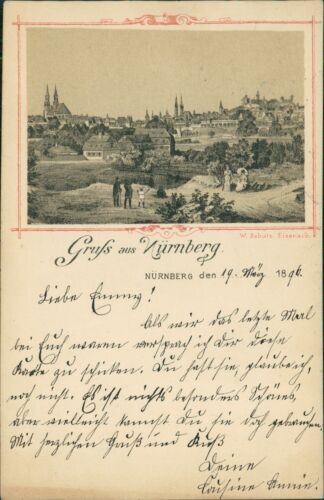 W. Schulz. Eisenach.
Gruß aus Nürnberg.
NÜRNBERG den 19. März 1896
Liebe Emmy!
Als wir das letzte Mal
bei Euch waren versprach ich Dir diese
Karte zu schicken. Du hast sie, glaube ich,
noch nicht. Es ist nichts besonders Schönes,
aber vielleicht kannst Du sie doch gebrauchen.
Mit herzlichen Gruß und Kuß
Deine
Cousine Annie.